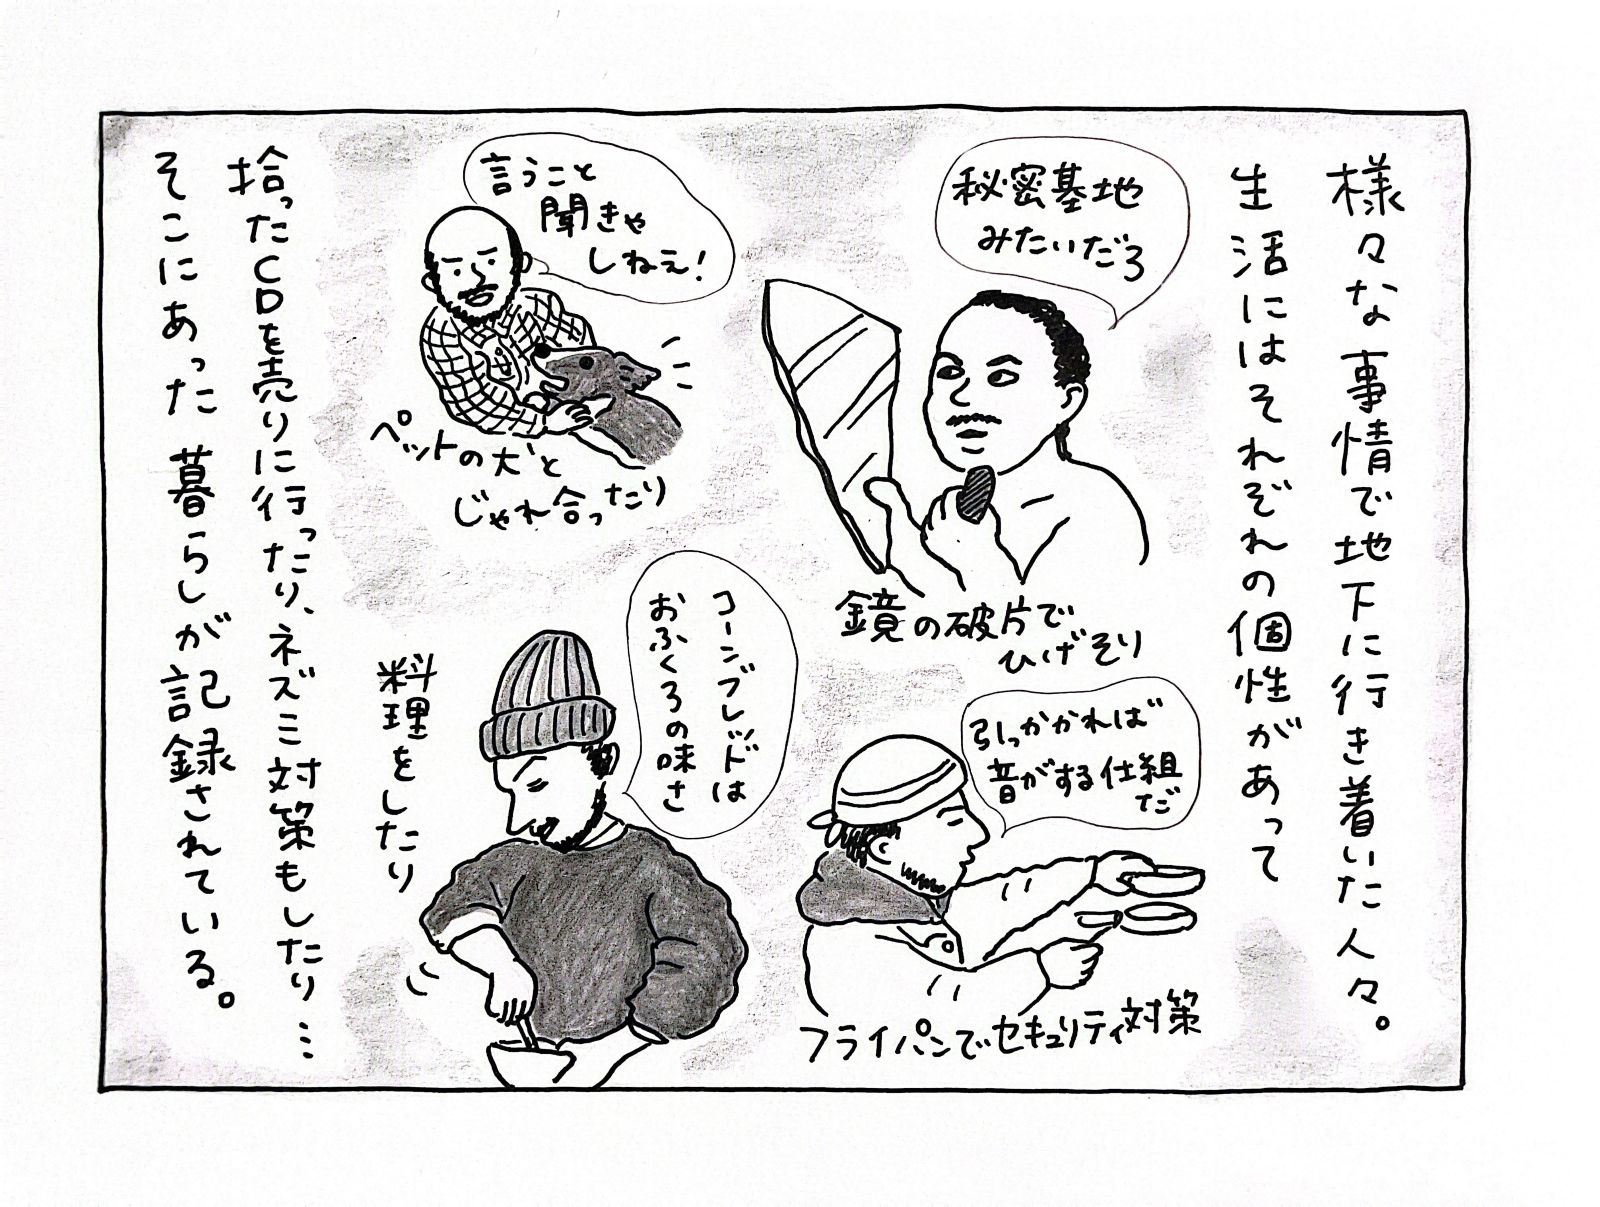 様々な事情で地下に行き着いた人々。
生活にはそれぞれの個性があって
秘密基地
みたいだろ
鏡の破片で
ひげそり
引っかかれば
音がする仕組
だ
フライパンでセキュリティ対策
言うこと
聞きゃ
しねえ!
ペットの犬と
じゃれ合ったり
コーンブレッドは
おふくろの味さ
料理をしたり
拾ったCDを売りに行ったり、ネズミ対策もしたり…
そこにあった暮らしが記録されている。